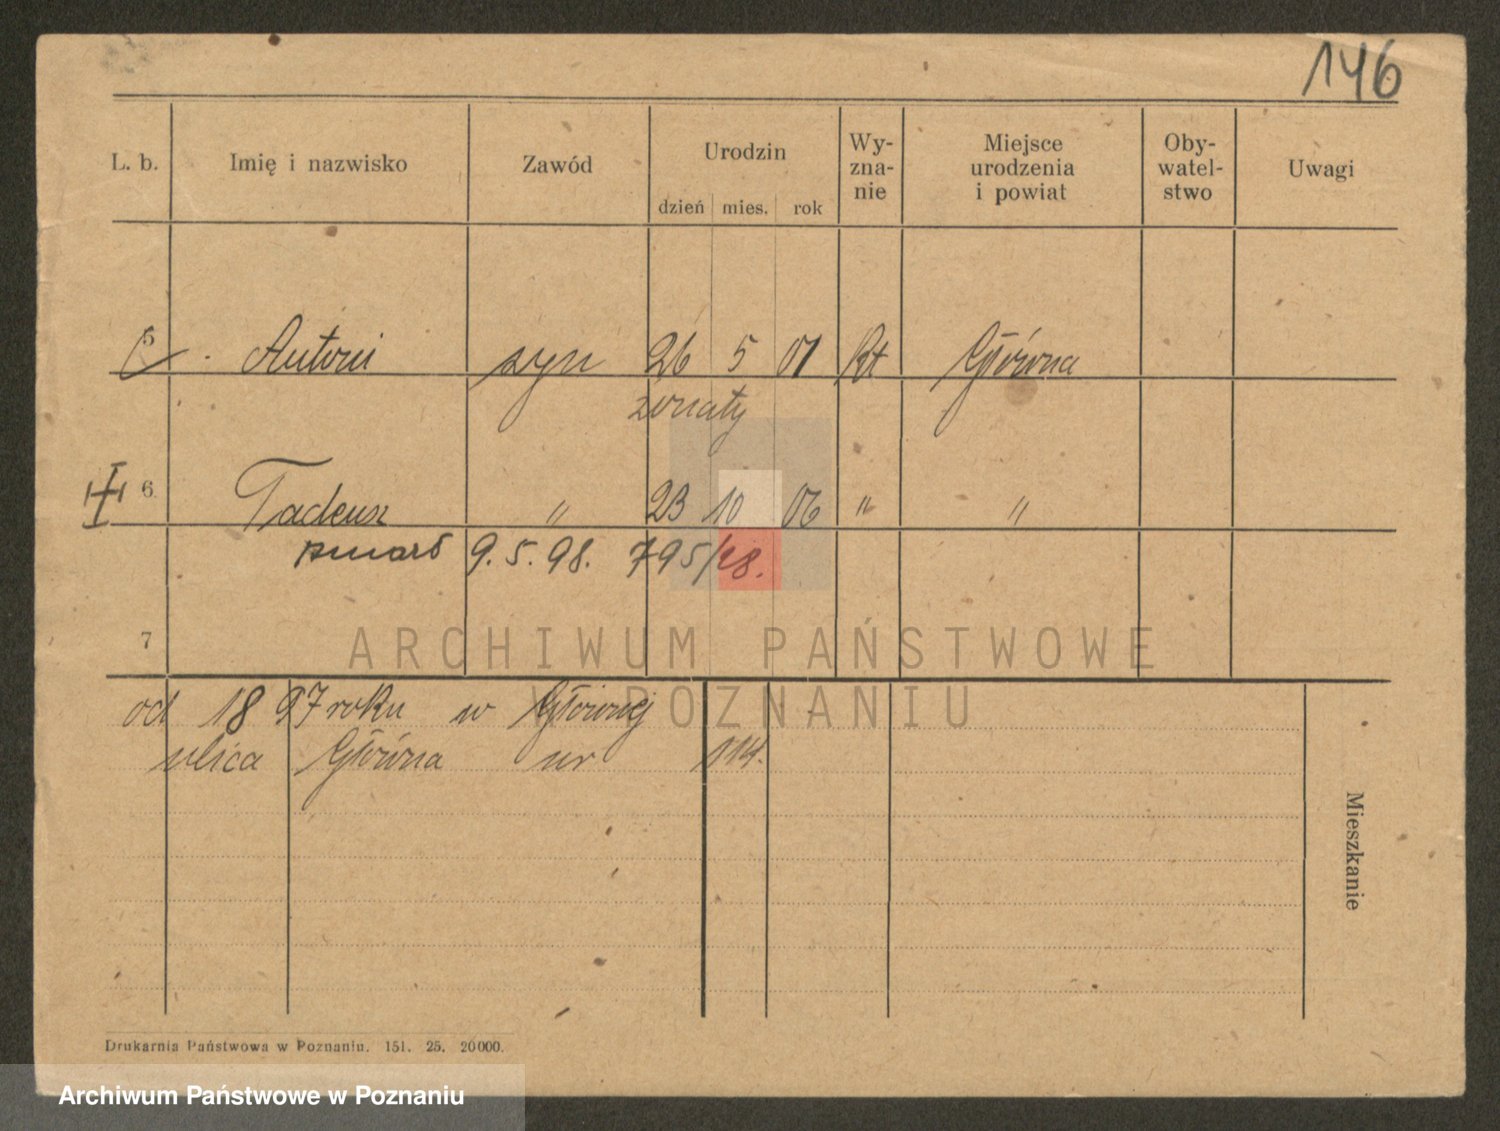 146
L. b. Imię i nazwisko Zawód Urodzin dzień mies. rok Wy-zna-nie Miejsce urodzenia i powiat Oby-watel-stwo Uwagi
5 Antoni syn 26 5 01 Rt Główna
żonaty
6 Tadeusz " 23 10 06 " "
zmarł 9. 5. 98. 795/28.
7
ARCHIWUM PAŃSTWOWE
W POZNANIU
od 1897 roku w Głównej
ulica Główna nr 114.
Mieszkanie
Drukarnia Państwowa w Poznaniu. 151. 25. 20000.
Archiwum Państwowe w Poznaniu